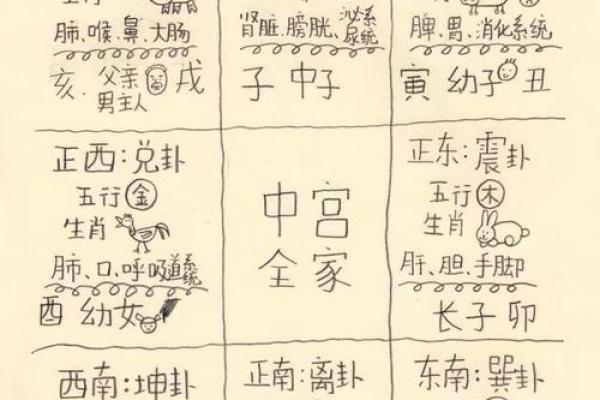 肺、喉、鼻、大肠
亥 父亲 男主人 戌
肾脏、膀胱、泌尿系统
子 中子
脾、胃、消化系统
寅 幼子 丑
正西:兑卦
五行 金
生肖
肺、口、呼吸道系统
酉 幼女
中宫
全家
正东:震卦
五行 木
生肖
肝、胆、手脚
长子 卯
西南:坤卦
正南:离卦
东南:巽卦